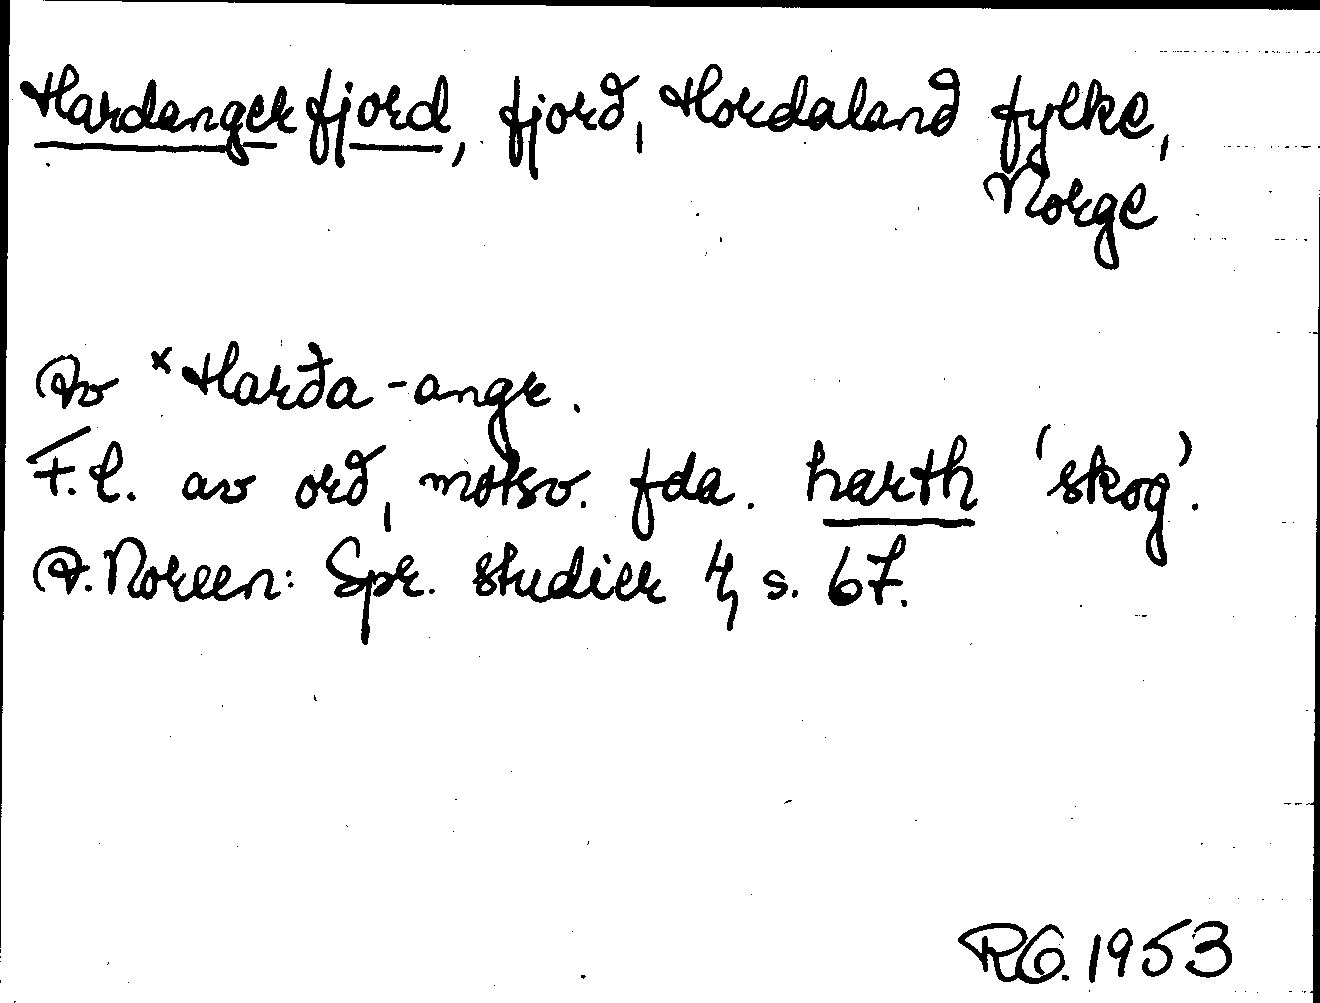 Hardangerfjord, fjord, Hordaland fylke,
Norge
Av *Harða-angr.
F.l. av ord, motsv. fda. harth 'skog'.
A. Noreen: Spr. studier 4, s. 67.
RG. 1953